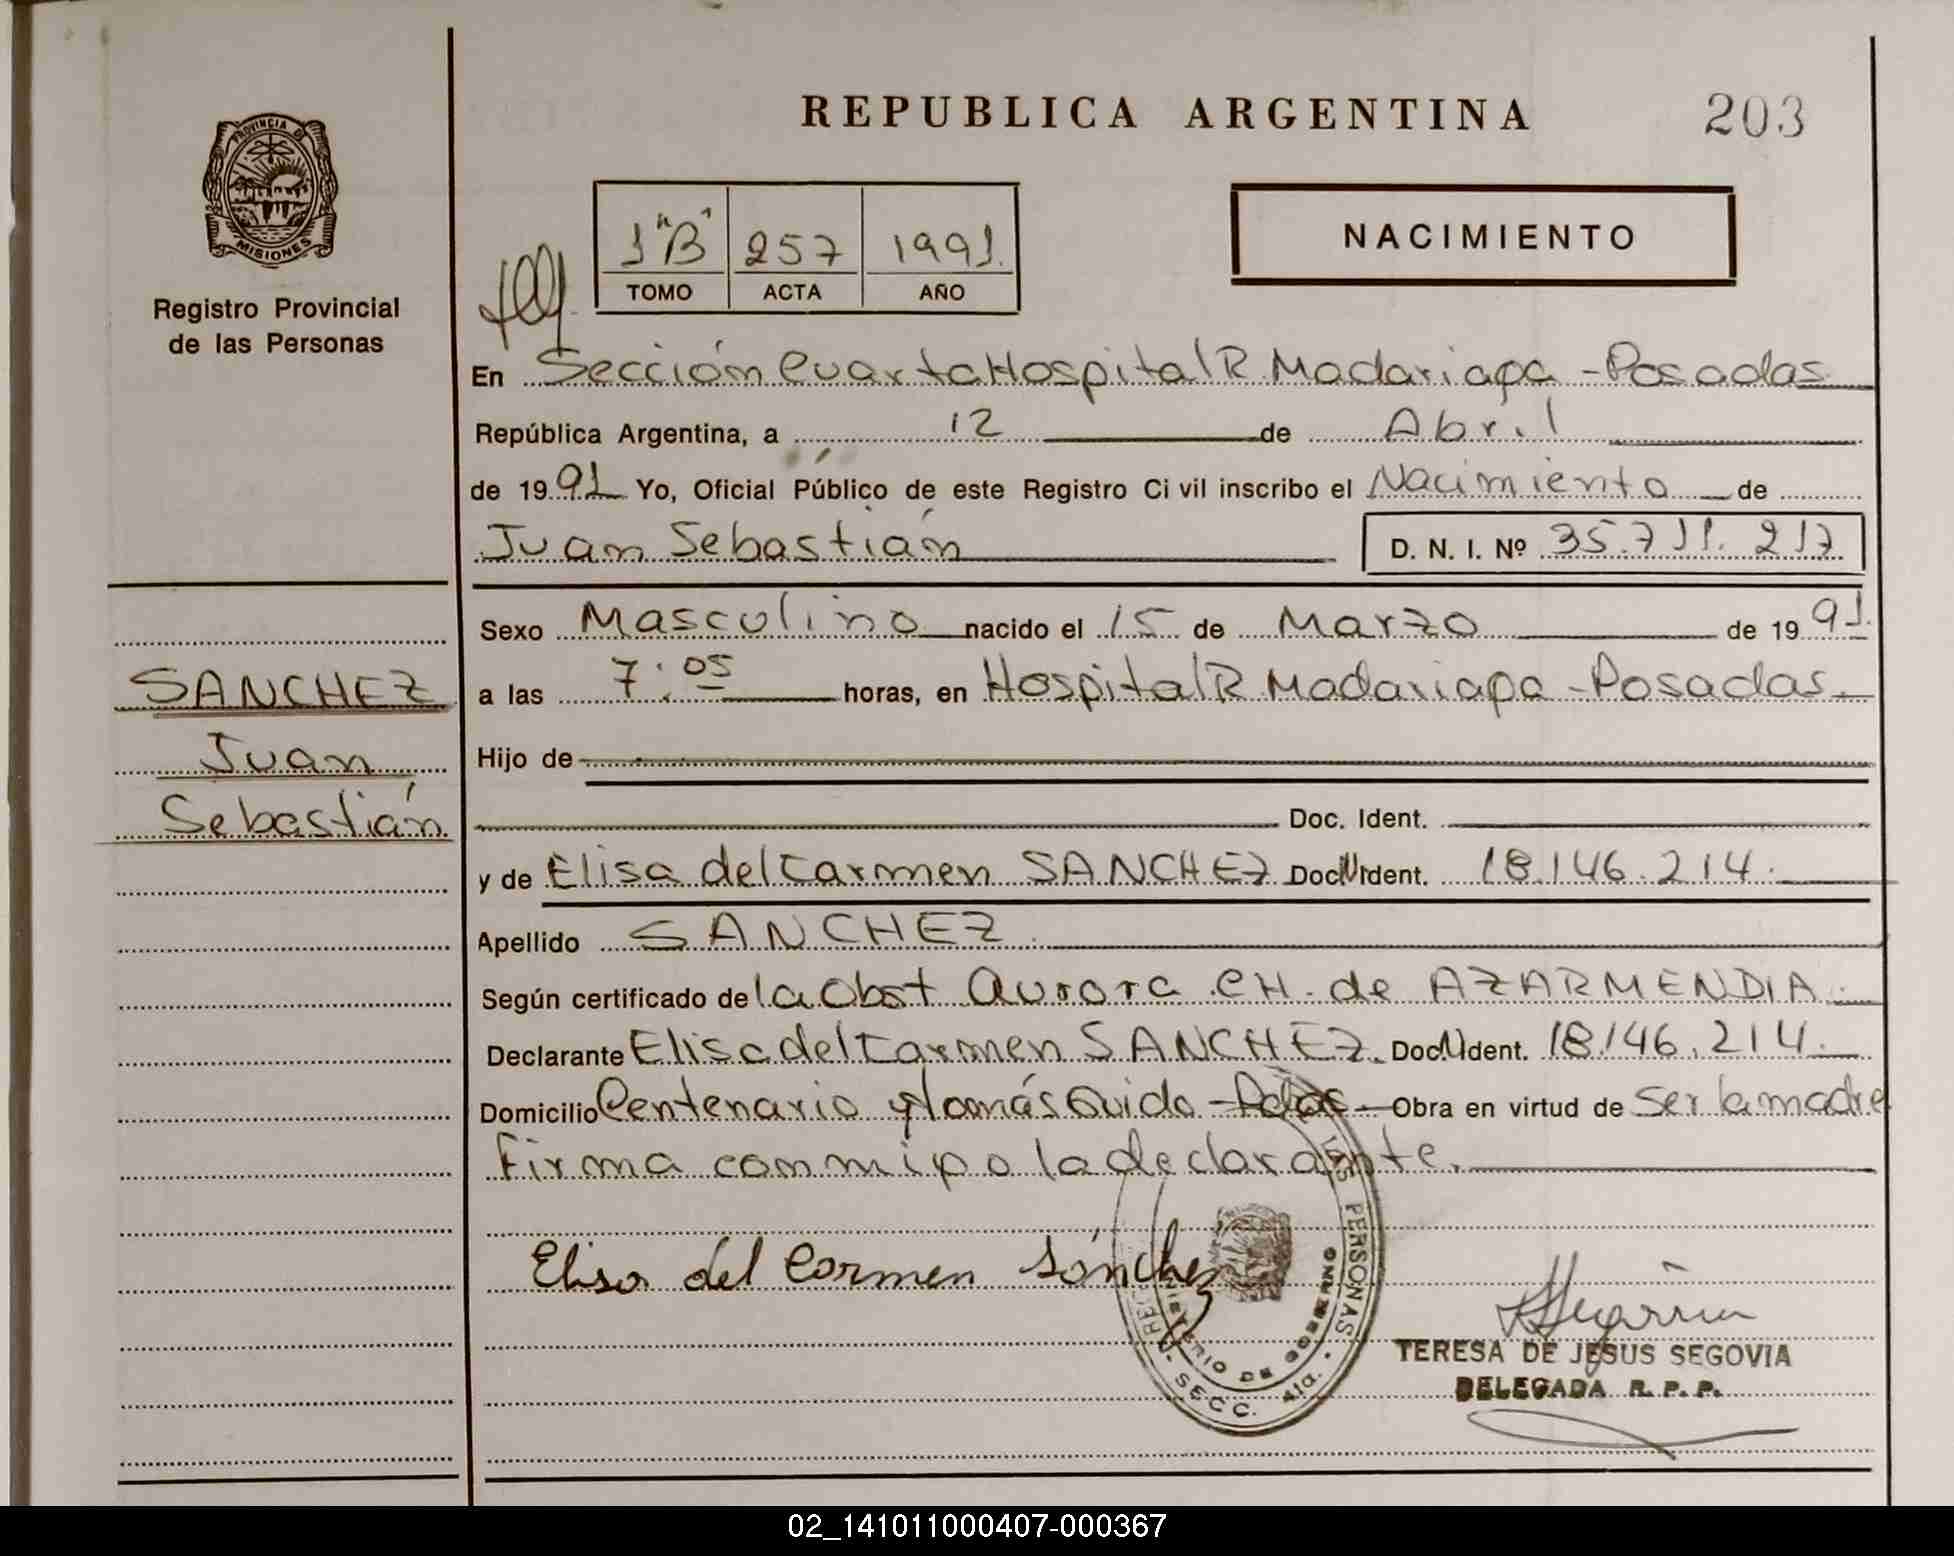 REPUBLICA ARGENTINA
203
PROVINCIA DE
MISIONES
Registro Provincial
de las Personas
1 "B" 257 1991
TOMO ACTA AÑO
NACIMIENTO
En Sección Cuarta Hospital R Madariaga - Posadas
República Argentina, a 12 de Abril
de 1991 Yo, Oficial Público de este Registro Civil inscribo el Nacimiento de
Juan Sebastián D. N. I. Nº 35.711.217
Sexo Masculino nacido el 15 de Marzo de 1991
SANCHEZ
Juan
Sebastián
a las 7:05 horas, en Hospital R Madariaga - Posadas
Hijo de
Doc. Ident.
y de Elisa del Carmen SANCHEZ Doc. Ident. 18.146.214.
Apellido SANCHEZ
Según certificado de la Obst Aurora CH. de AZARMENDIA
Declarante Elisa del Carmen SANCHEZ. Doc. Ident. 18.146.214.
Domicilio Centenario y Tomás Guido - Pdas - Obra en virtud de Ser la madre
Firma conmigo la declarante.
Elisa del Carmen Sánchez
LAS PERSONAS
MINISTERIO DE GOBIERNO
SECC. 4ta.
TERESA DE JESUS SEGOVIA
DELEGADA R. P. P.
02_141011000407-000367